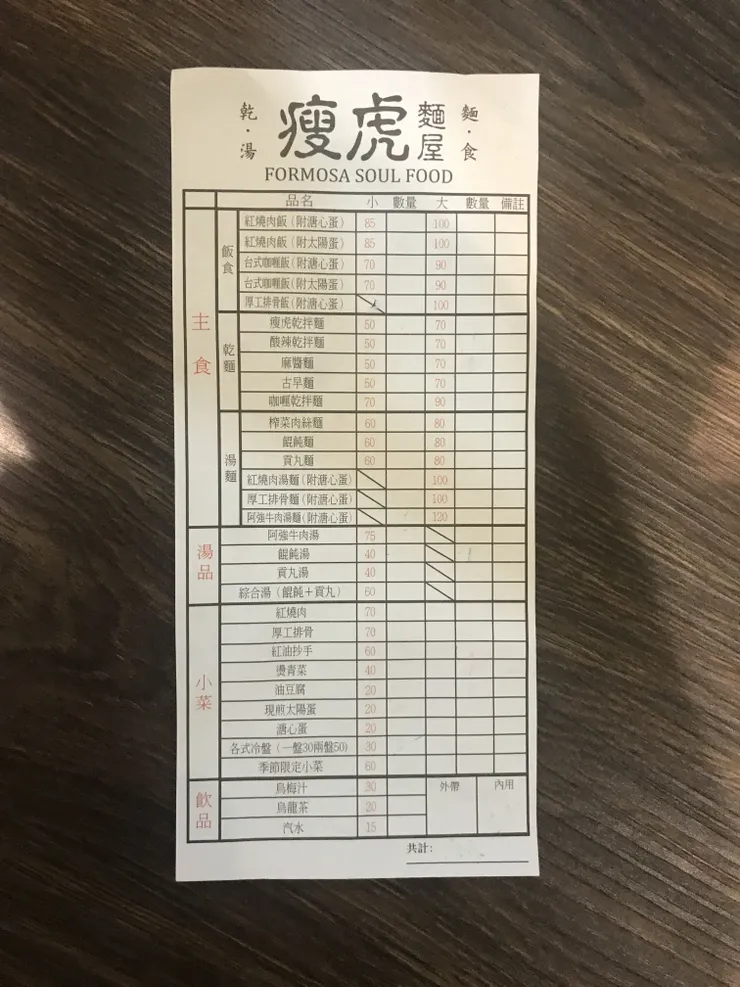 乾・湯 瘦虎 麵屋 麵・食
FORMOSA SOUL FOOD
品名 小 數量 大 數量 備註
主食
飯食
紅燒肉飯(附溏心蛋) 85 100
紅燒肉飯(附太陽蛋) 85 100
台式咖喱飯(附溏心蛋) 70 90
台式咖喱飯(附太陽蛋) 70 90
厚工排骨飯(附溏心蛋) 100
乾麵
瘦虎乾拌麵 50 70
酸辣乾拌麵 50 70
麻醬麵 50 70
古早麵 50 70
咖喱乾拌麵 70 90
湯麵
榨菜肉絲麵 60 80
餛飩麵 60 80
貢丸麵 60 80
紅燒肉湯麵(附溏心蛋) 100
厚工排骨麵(附溏心蛋) 100
阿強牛肉湯麵(附溏心蛋) 120
湯品
阿強牛肉湯 75
餛飩湯 40
貢丸湯 40
綜合湯(餛飩+貢丸) 60
小菜
紅燒肉 70
厚工排骨 70
紅油抄手 60
燙青菜 40
油豆腐 20
現煎太陽蛋 20
溏心蛋 20
各式冷盤(一盤30兩盤50) 30
季節限定小菜 60
飲品
烏梅汁 30
烏龍茶 20
汽水 15
外帶 內用
共計: